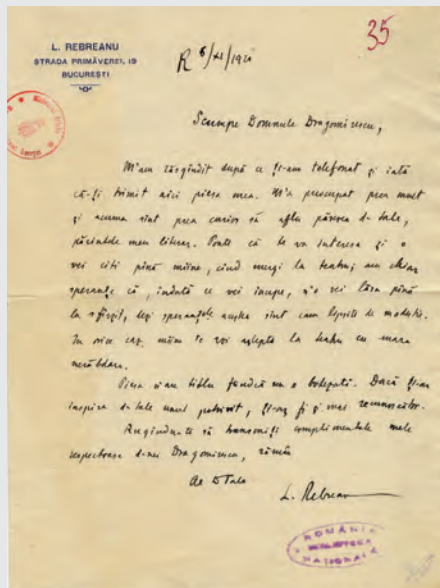 L. REBREANU
STRADA PRIMĂVEREI, 19
BUCUREȘTI
35
Scumpe Domnule Dragomirescu,
M'am răsgîndit după ce ți-am telefonat și iată
că-ți trimit aici piesa mea. M'a preocupat prea mult
și acuma sînt prea curios să aflu părerea d-tale,
părintele meu literar. Poate că te va interesa și o
vei citi pînă mîine, cînd mergi la teatru; am chiar
speranțe că, îndată ce vei începe, n'o vei lăsa pînă
la sfîrșit, deși speranțele acestea sînt cam lipsite de modestie.
In orice caz, mîine te voi aștepta la teatru cu mare
nerăbdare.
Piesa n'are titlu fiindcă nu e botezată. Dacă ți-ar
inspira d-tale unul potrivit, ți-aș fi și mai recunoscător.
Rugîndu-te să transmiți complimentele mele
respectoase d-nei Dragomirescu, rămîn
Al D Tale
L. Rebreanu
ROMÂNIA
BIBLIOTECA
NAȚIONALĂ